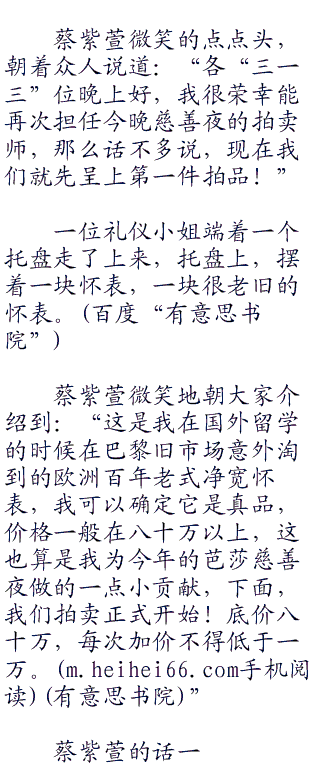 蔡紫萱微笑的点点头，
朝着众人说道：“各“三一
三”位晚上好，我很荣幸能
再次担任今晚慈善夜的拍卖
师，那么话不多说，现在我
们就先呈上第一件拍品！”
一位礼仪小姐端着一个
托盘走了上来，托盘上，摆
着一块怀表，一块很老旧的
怀表。(百度“有意思书
院”)
蔡紫萱微笑地朝大家介
绍到：“这是我在国外留学
的时候在巴黎旧市场意外淘
到的欧洲百年老式净宽怀
表，我可以确定它是真品，
价格一般在八十万以上，这
也算是我为今年的芭莎慈善
夜做的一点小贡献，下面，
我们拍卖正式开始！底价八
十万，每次加价不得低于一
万。(m.heihei66.com手机阅
读)(有意思书院)”
蔡紫萱的话一